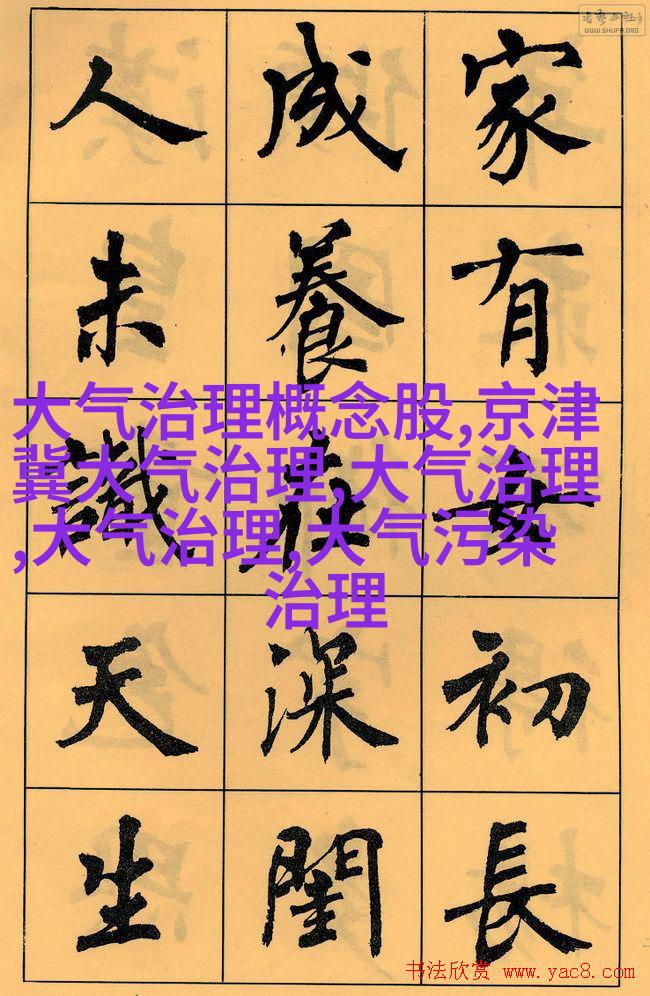 家有女初長
成養在深閨
人未識天生
大气治理概念股,京津
冀大气治理,大气治理
,大气治理,大气污染
治理
WWW.SHUFA.ORG
书法欣赏 www.yac8.com